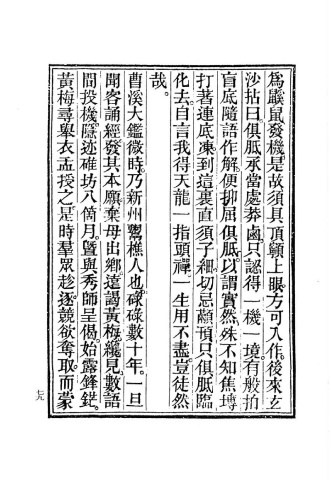 為鼷鼠發機是故須具頂𩕳上眼方可入作後來玄
沙拈曰俱胝承當處莽鹵只認得一機一境有般拍
盲底隨語作解便抑屈俱胝以謂實然殊不知焦塼
打著連底凍到這裏直須子細切忌顢頇只俱胝臨
化去自言我得天龍一指頭禪一生用不盡豈徒然
哉。
曹溪大鑑微時。乃新州鬻樵人也。碌碌數十年。一旦
聞客誦經發其本願。棄母出鄉遠謁黃梅。纔見數語
間投機。隱迹碓坊八箇月。曁與秀師呈偈。始露鋒鋩。
黃梅尋舉衣盂授之。是時羣眾趁逐。競欲奪取。而蒙
七九